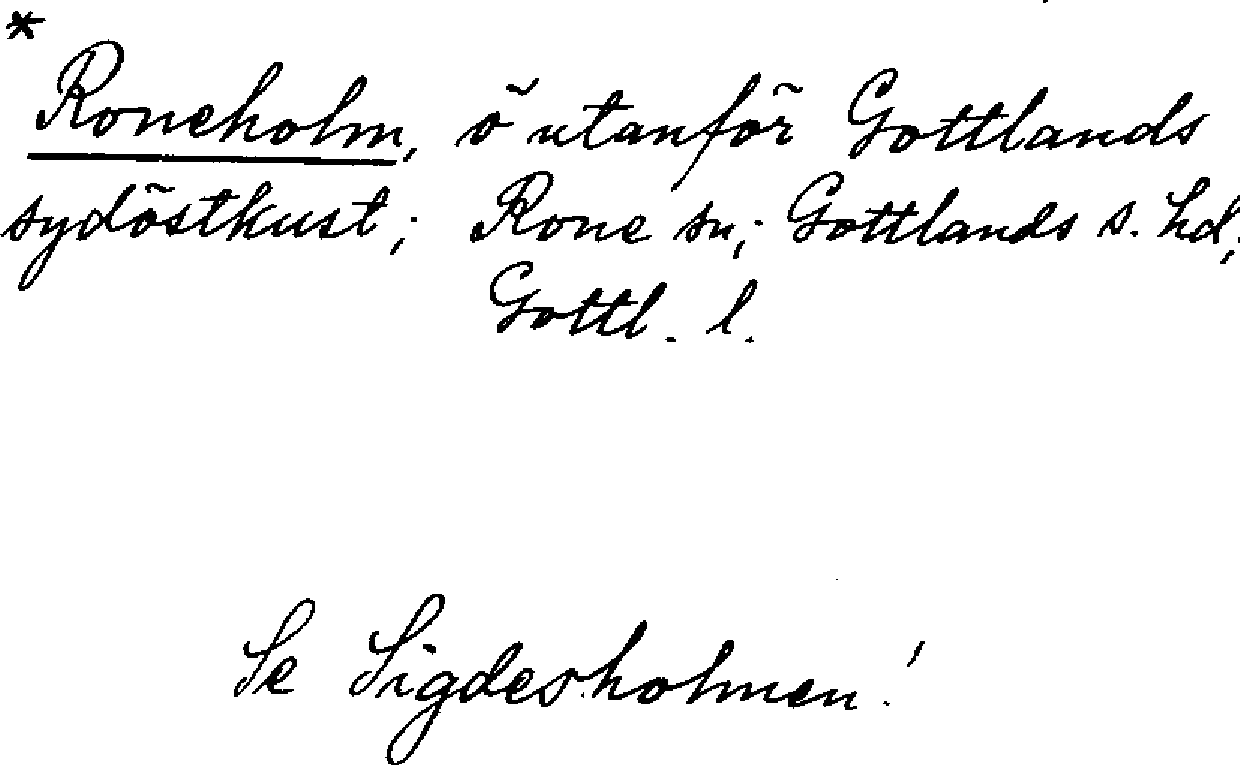 *
Roneholm, ö utanför Gottlands
sydöstkust; Rone sn; Gottlands s. hd;
Gottl. l.
Se Sigdesholmen!